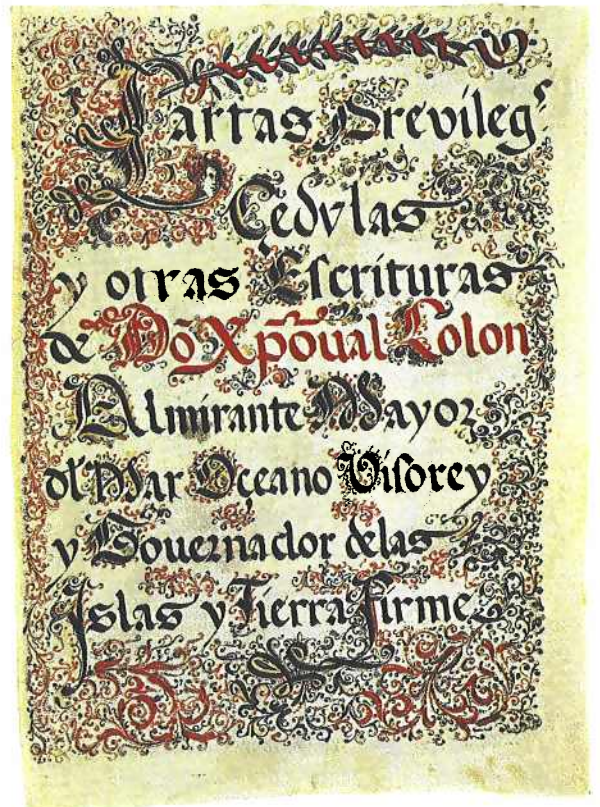 Cartas Previlegs
Cedvlas
y otras Escrituras
de Dõ Xpõual Colon
Almirante Mayor
dl Mar Oçeano Visorey
y Gouernador delas
Islas y Tierra Firme